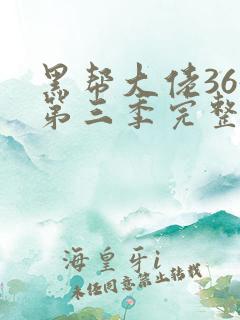 黑帮大佬36
第三季完整
海皇牙i
未经同意禁止转载